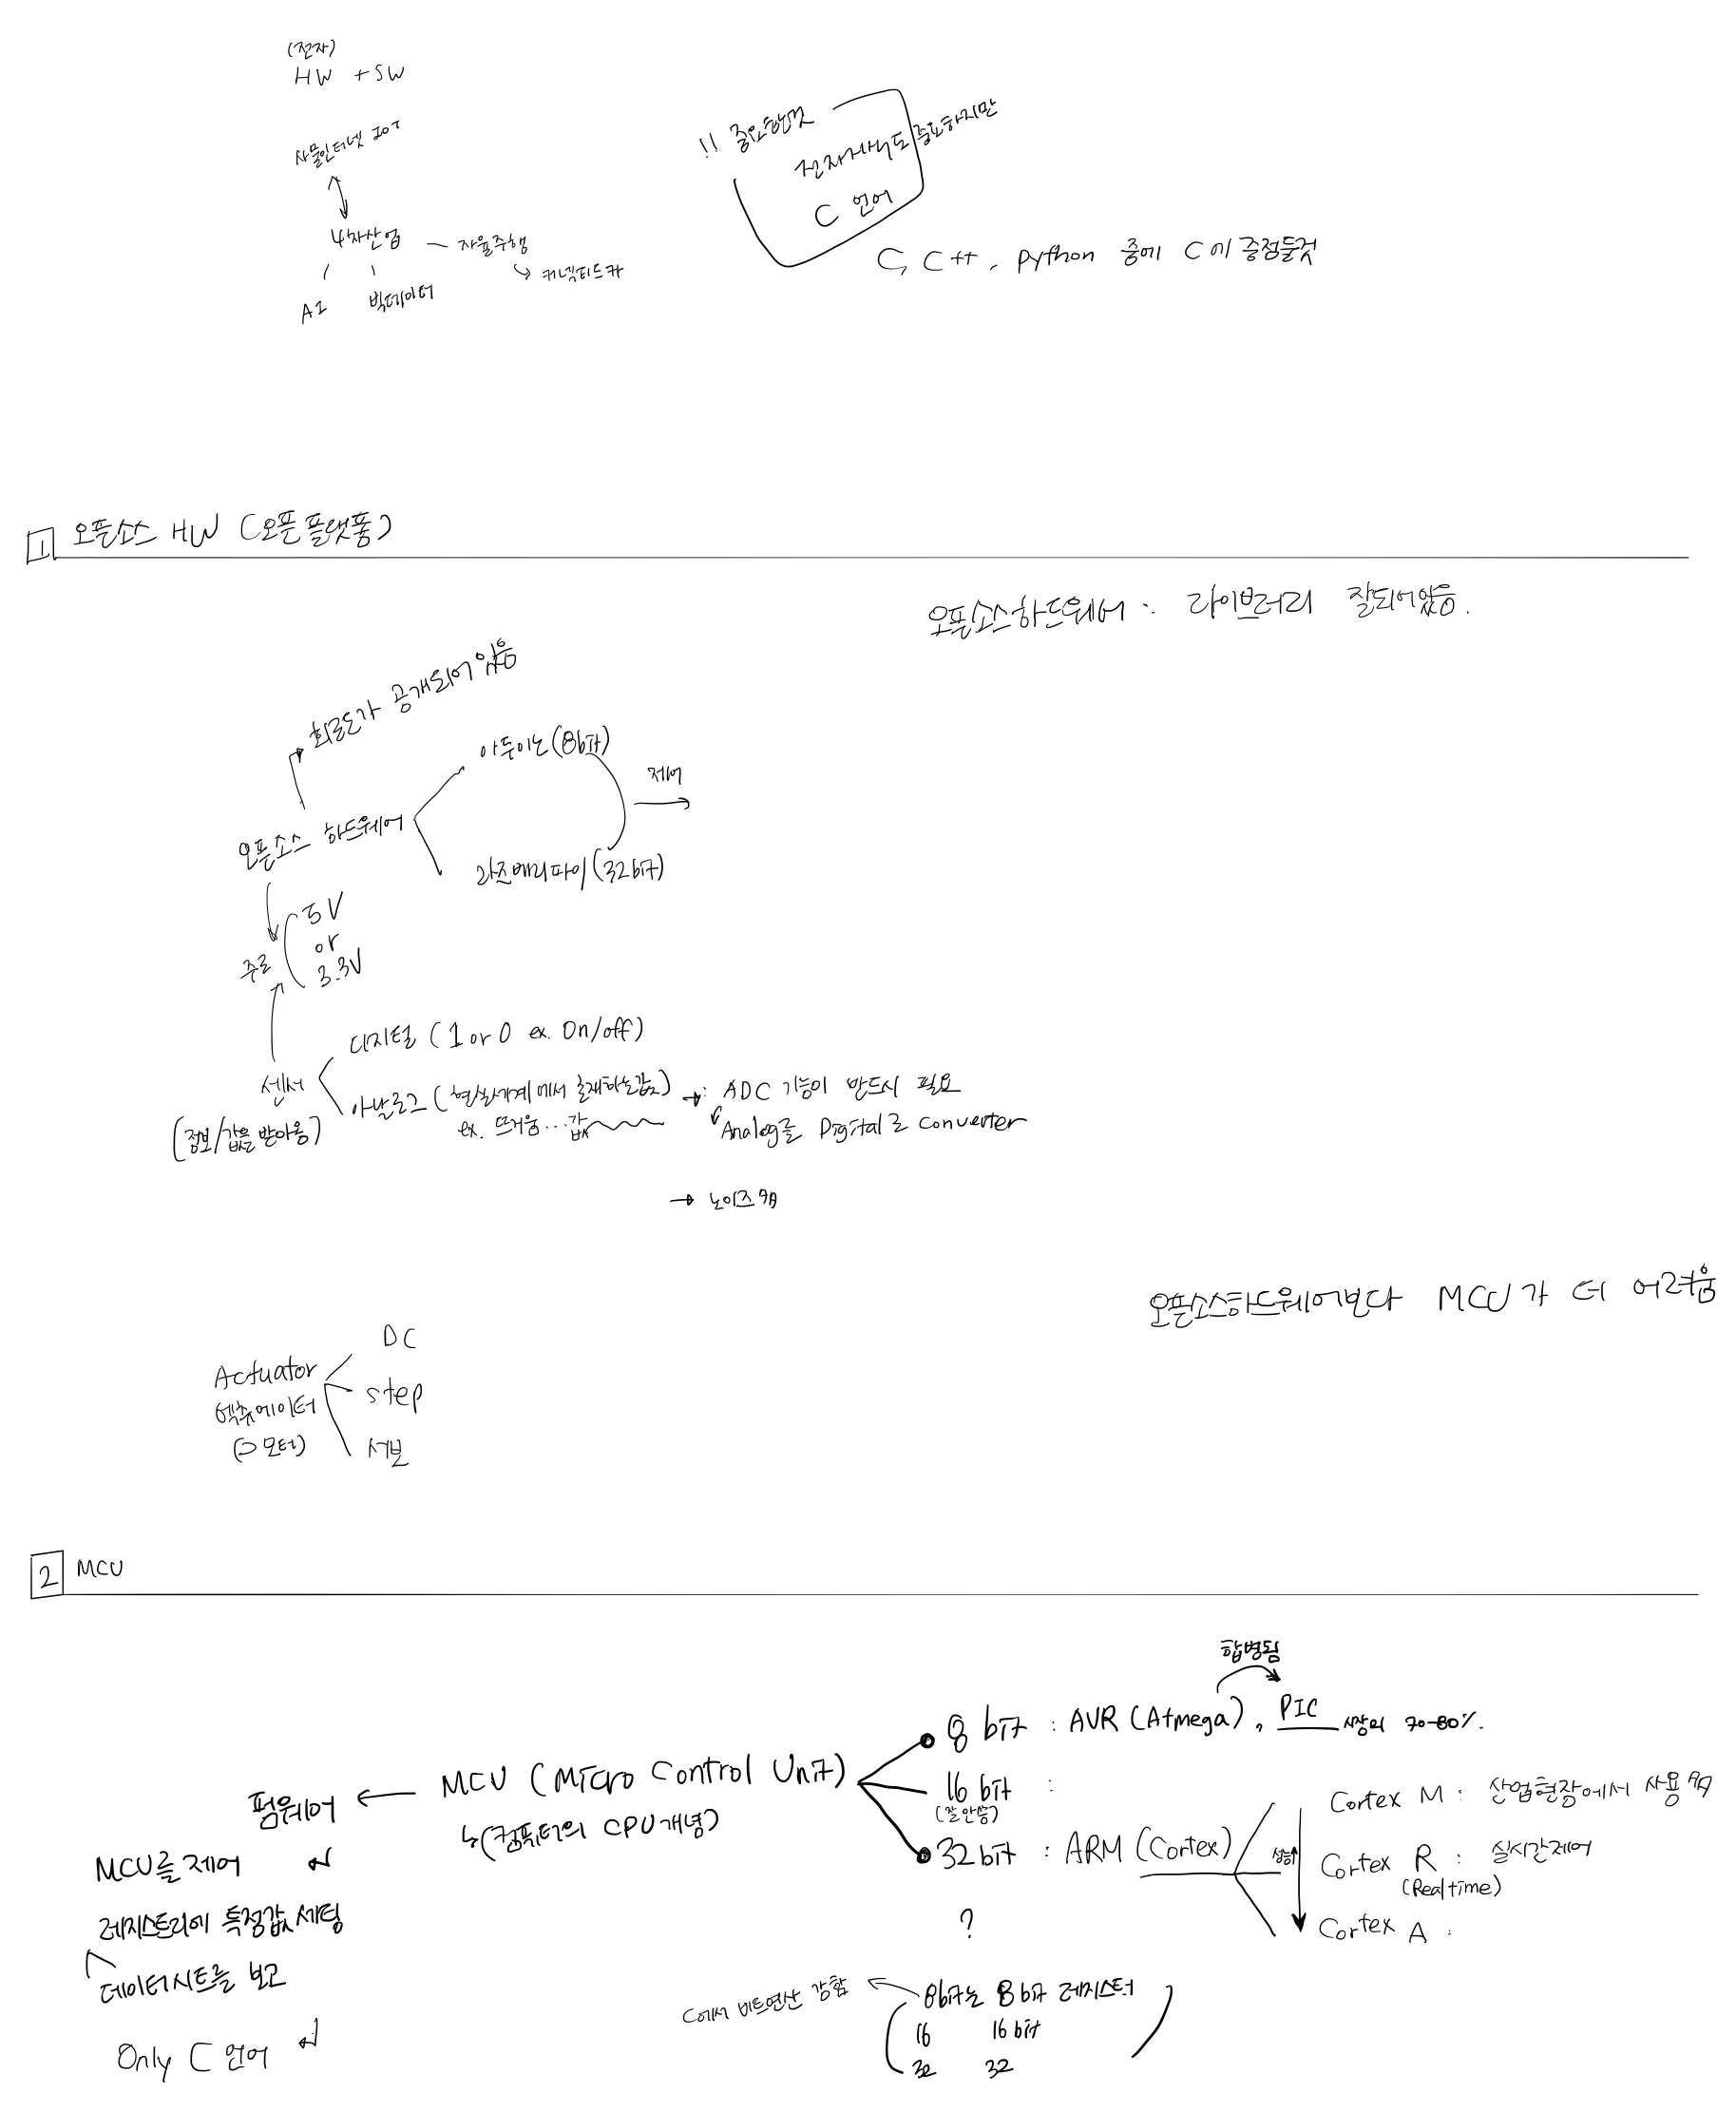 (전자)
HW + SW
사물인터넷 IoT
4차산업 — 자율주행
커넥티드카
AI 빅데이터
!! 중요한것
전자지식도 중요하지만
C 언어
C, C++, Python 중에 C에 중점둘것
1 오픈소스 HW (오픈플랫폼)
오픈소스하드웨어 : 라이브러리 잘되어있음.
회로도가 공개되어 있음
아두이노(8bit)
제어
오픈소스 하드웨어
라즈베리파이(32bit)
주로 5V
or
3.3V
디지털 (1 or 0 ex. On/off)
센서
아날로그 (현실세계에서 존재하는값) : ADC 기능이 반드시 필요
(정보/값을 받아옴)
ex. 뜨거움...값
Analog를 Digital로 converter
→ 노이즈 多
오픈소스하드웨어보다 MCU가 더 어려움
DC
Actuator
엑츄에이터
step
(⊃모터)
서보
2 MCU
합병됨
8 bit : AVR (Atmega), PIC 시장의 70-80%.
MCU (Micro Control Unit)
16 bit :
(잘안씀)
펌웨어
↳(컴퓨터의 CPU개념)
32bit : ARM (Cortex)
성능↑
Cortex M : 산업현장에서 사용 多
Cortex R : 실시간제어
(Realtime)
Cortex A :
MCU를 제어
레지스트리에 특정값 세팅
데이터시트를 보고
Only C 언어
?
C에서 비트연산 강함
8bit는 8bit 레지스터
16 16bit
32 32